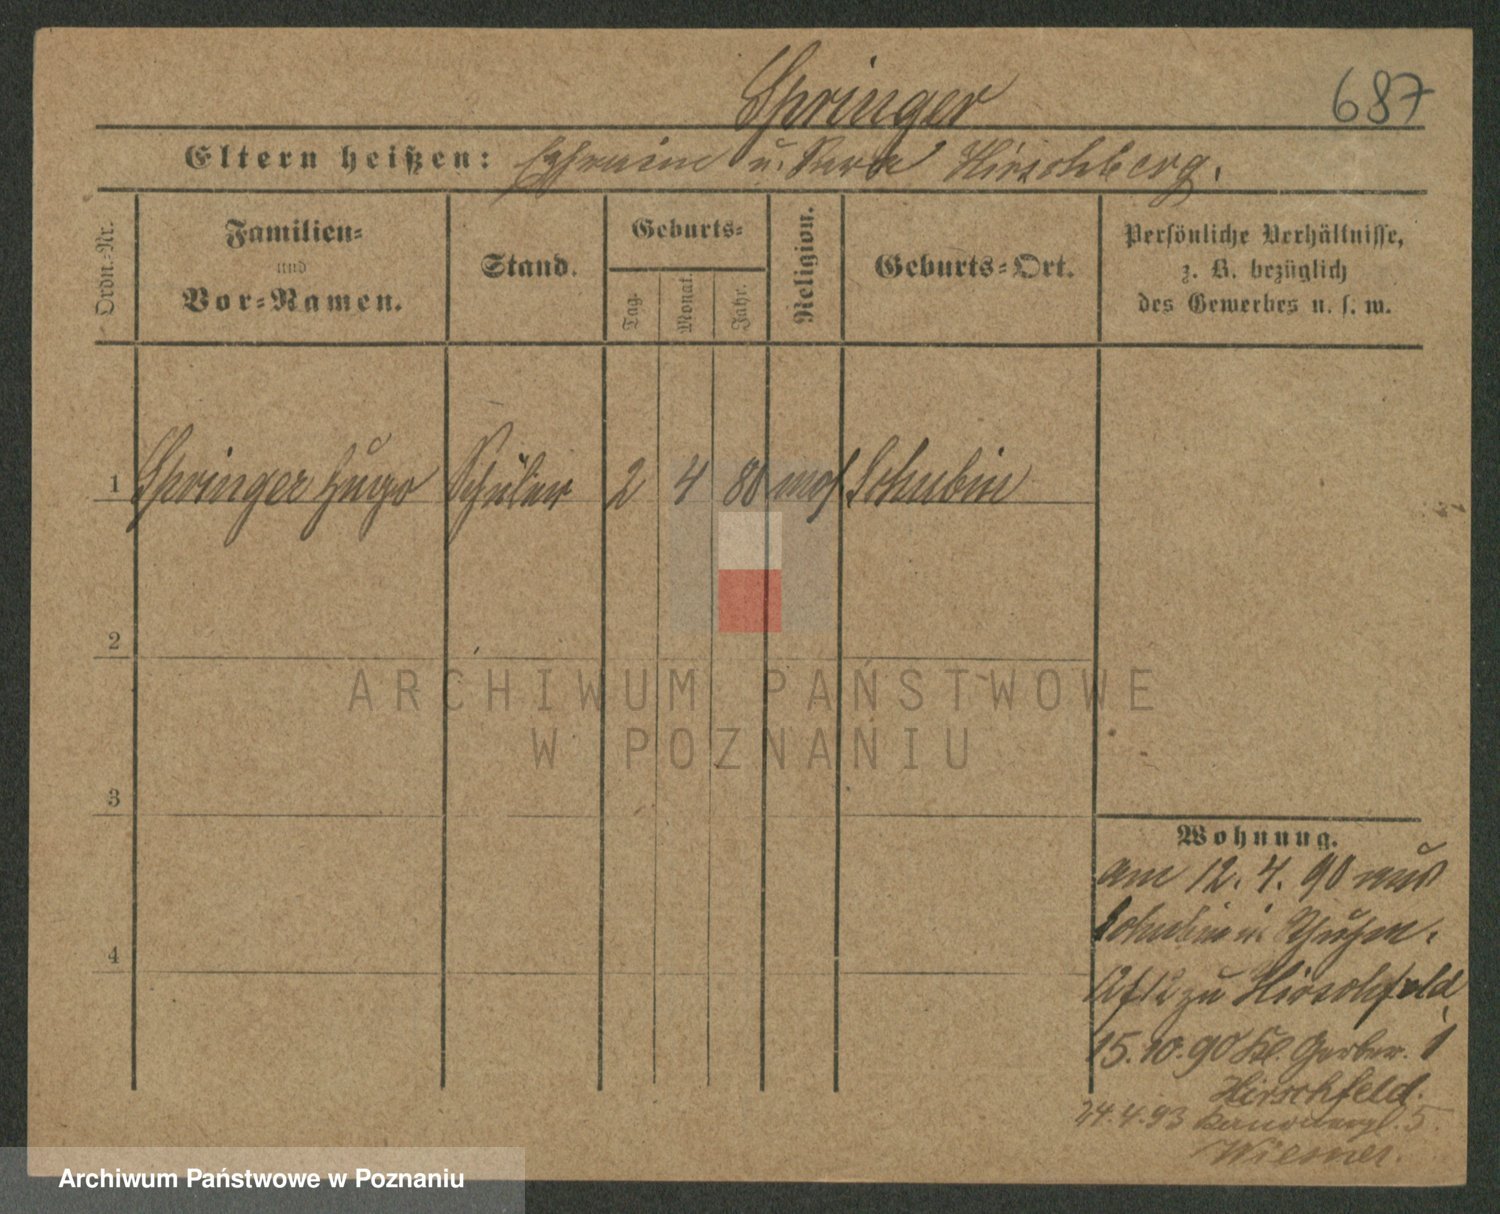 Springer
687
Eltern heißen: Ephraim u. Hirschberg.
Ordn.-Nr.
Familien-
und
Vor-Namen.
Stand.
Geburts-
Tag.
Monat.
Jahr.
Religion.
Geburts-Ort.
Persönliche Verhältnisse,
z. B. bezüglich
des Gewerbes u. s. w.
1 Springer Hugo Schüler 2 4 80 mos. Schubin
2
3
4
ARCHIWUM PAŃSTWOWE
W POZNANIU
Wohnung.
am 12. 4. 90 aus
Schubin
12/12 zu Hirschfeld
15.10.90 Kl. Gerber. 1
Hirschfeld.
24.4.93 5.
Wiesner.
Archiwum Państwowe w Poznaniu